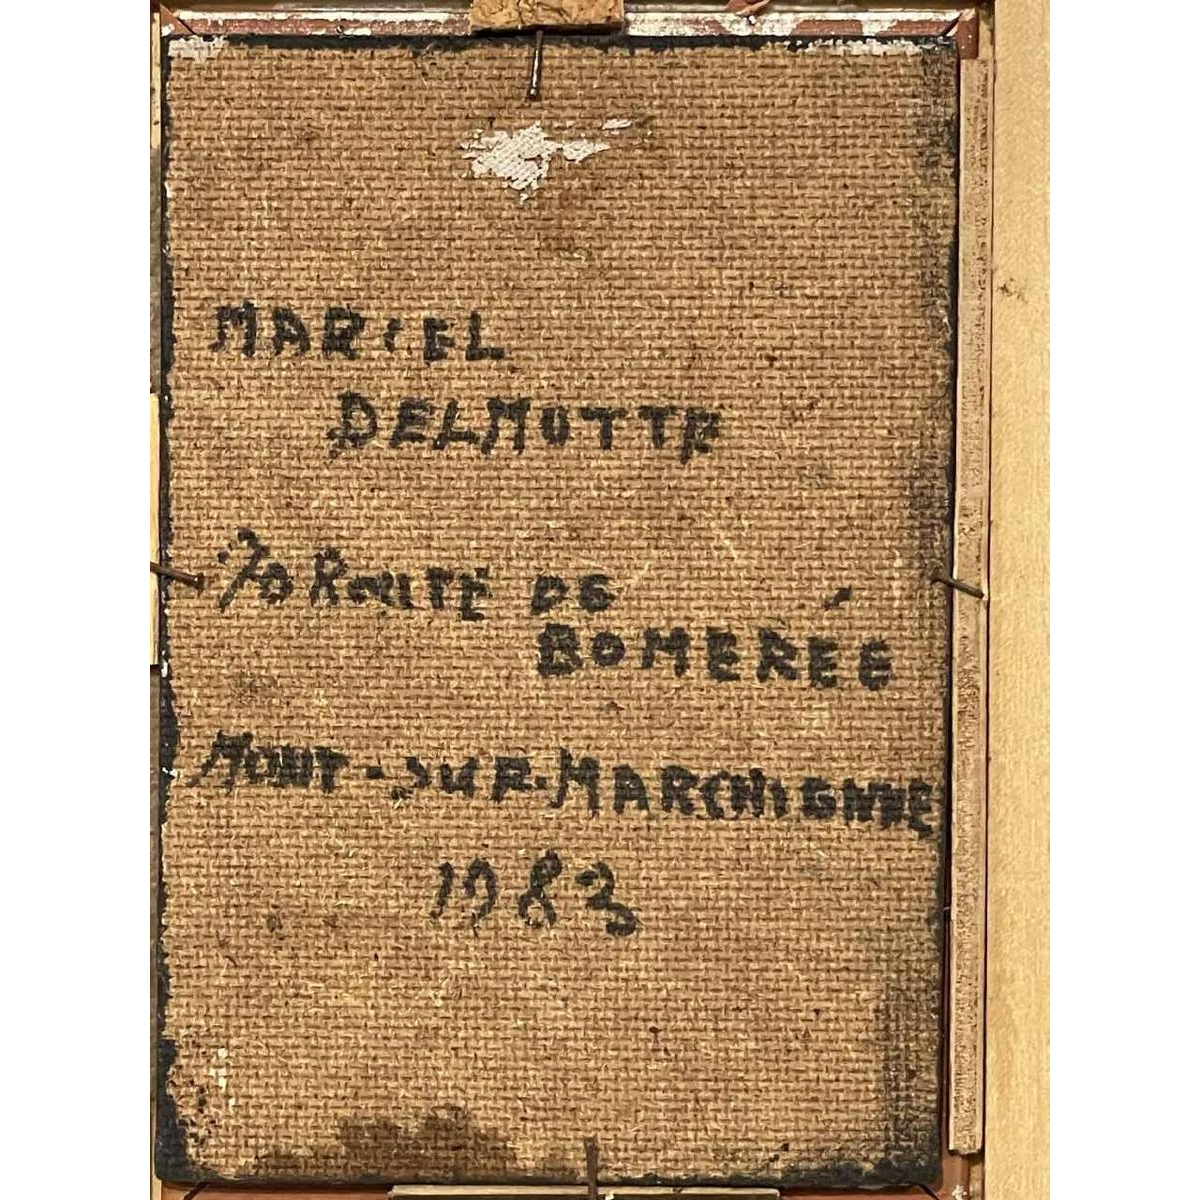 MARCEL
DELMOTTE
70 ROUTE DE
BOMERÉE
MONT-SUR-MARCHIENNE
1983